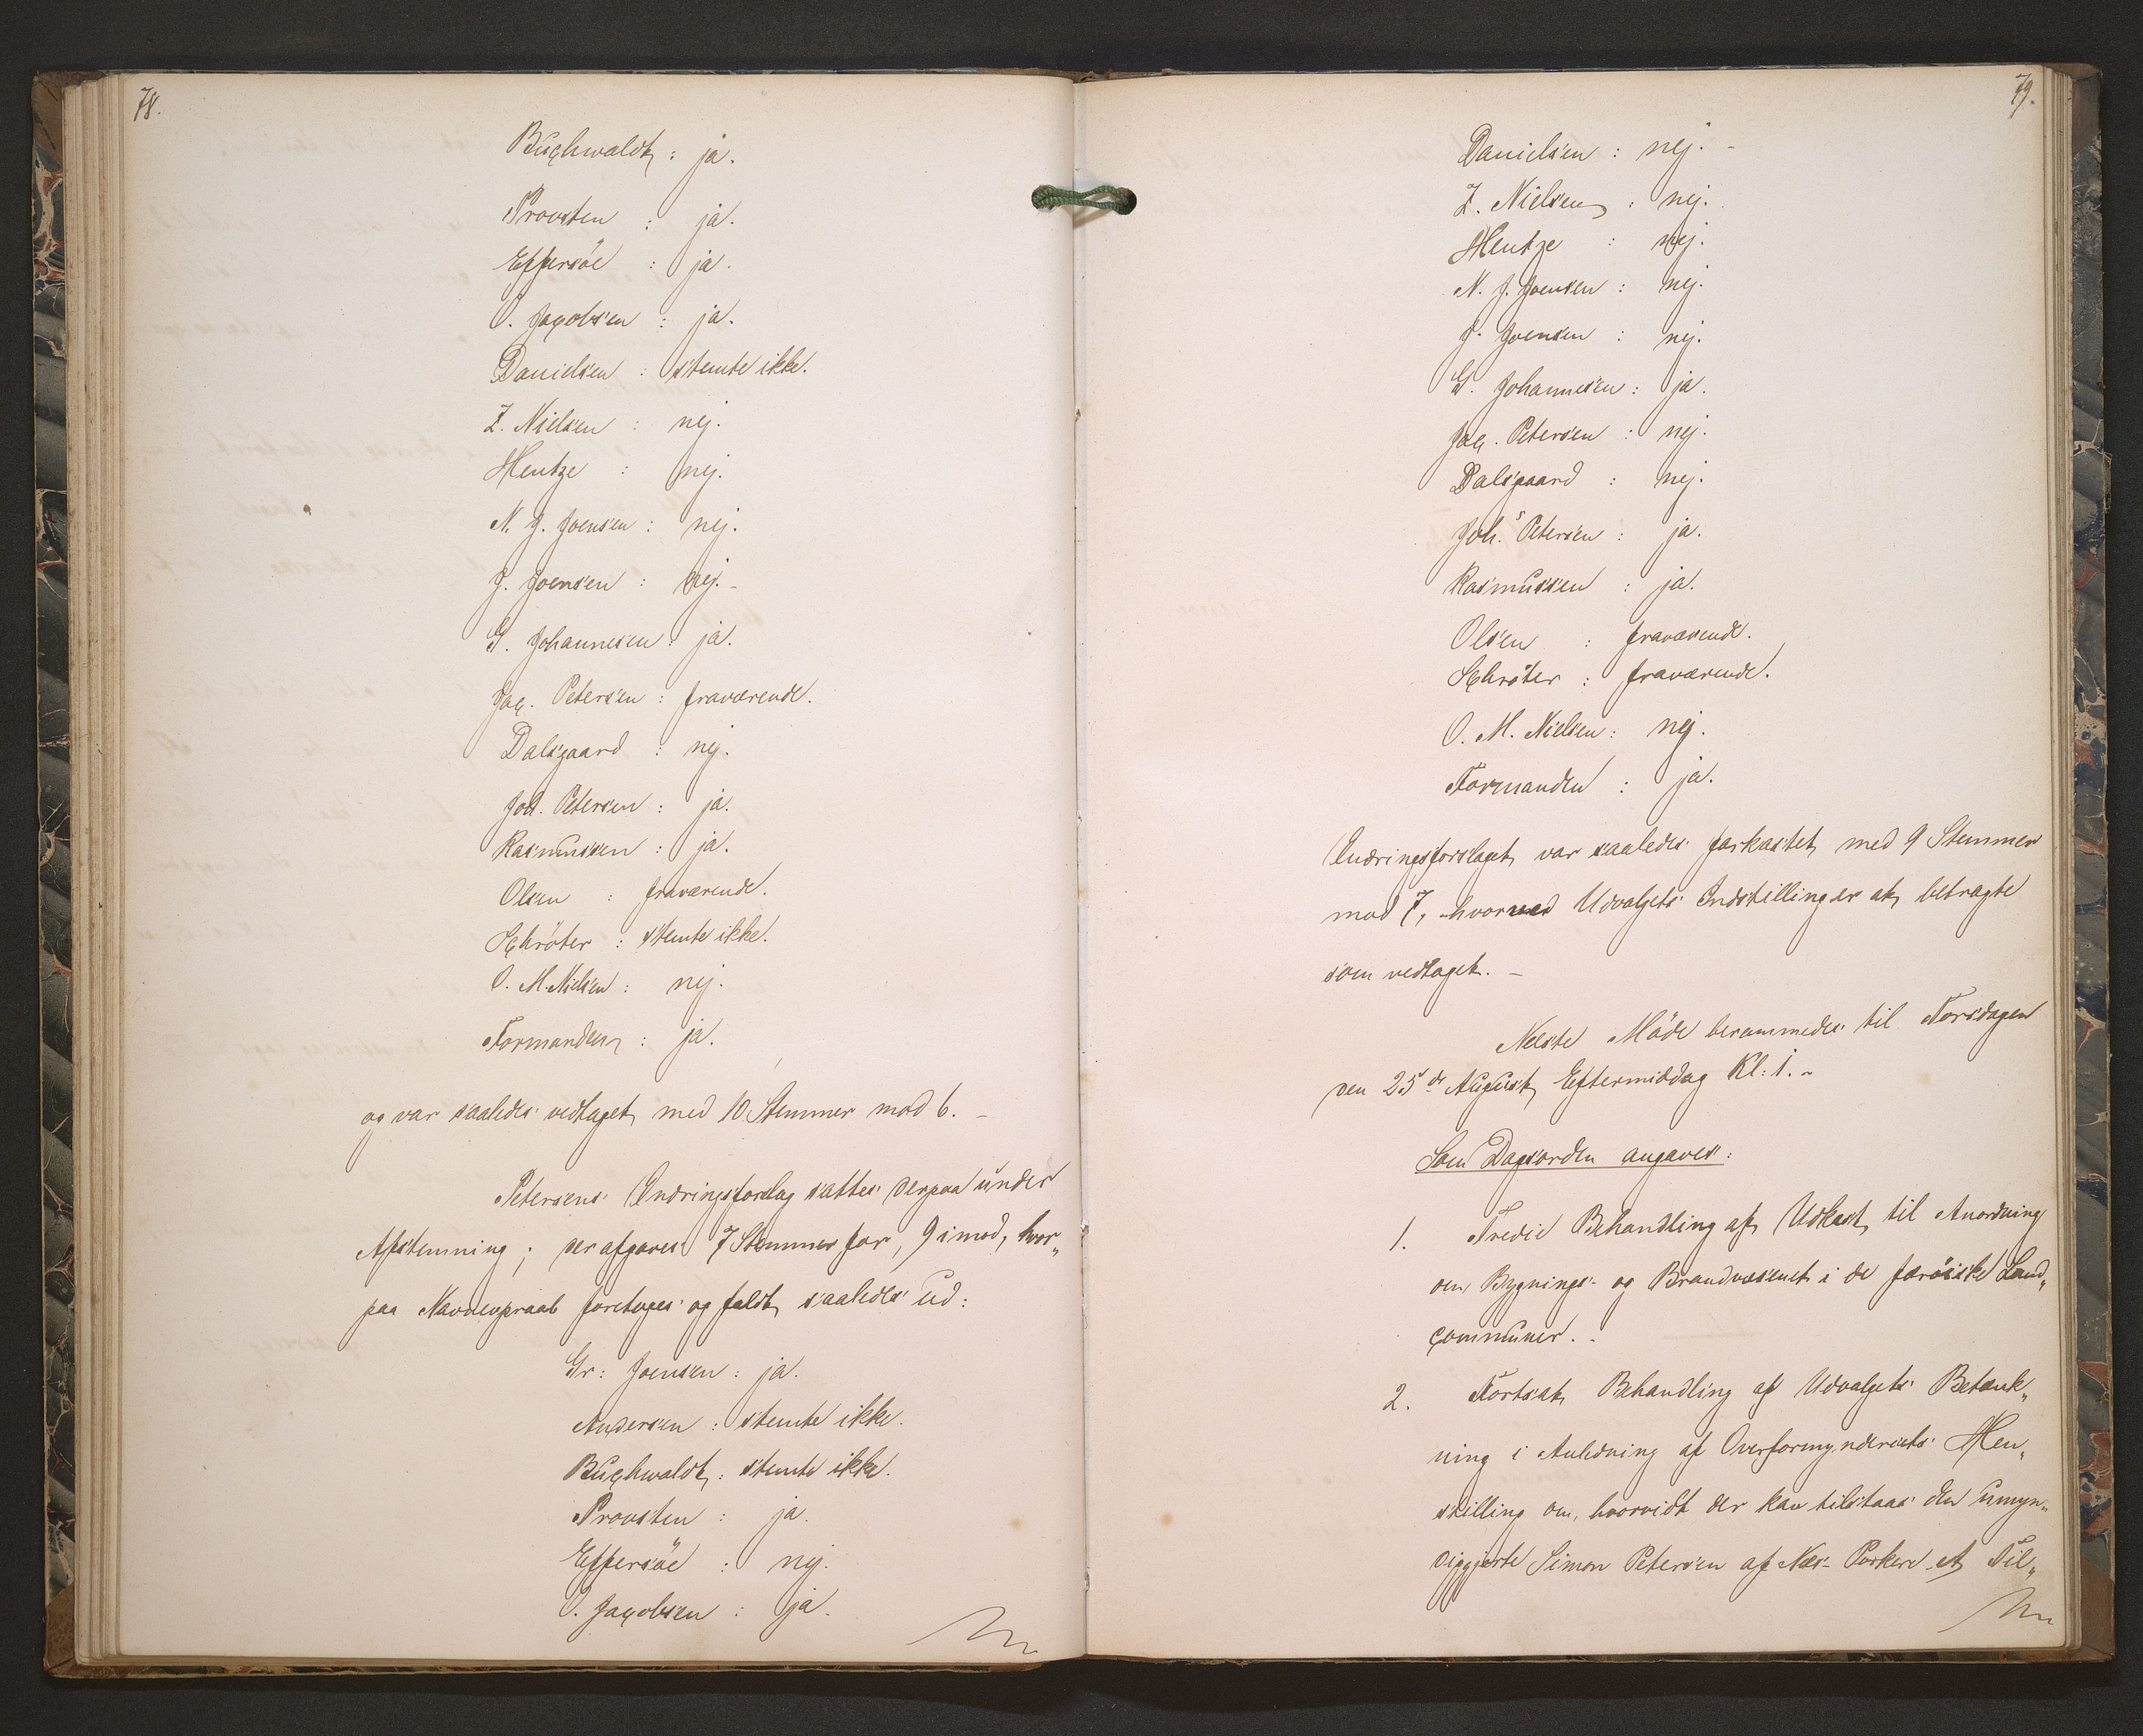 78.
Buchwaldt : ja.
Provsten : ja.
Effersöe : ja.
O. Jacobsen : ja.
Danielsen : stemte ikke.
Z. Nielsen : nej.
Hentze : nej.
N. J. Joensen : nej.
J. Joensen : nej. -
G. Johannesen : ja.
Jac. Petersen : fraværende.
Dalsgaard : nej.
Joh. Petersen : ja.
Rasmussen : ja.
Olsen : fraværende.
Schröter : stemte ikke.
O. M. Nielsen : nej.
Formanden : ja.
og var saaledes vedtaget med 10 Stemmer mod 6. -
Petersens Ændringsforslag sattes derpaa under
Afstemning ; der afgaves 7 Stemmer for, 9 imod, hvor„
paa Navneopraab foretoges og faldt saaledes ud :
Gr : Joensen : ja.
Andersen : stemte ikke.
Buchwaldt : stemte ikke.
Provsten : ja.
Effersöe : nej.
O. Jacobsen : ja.
79.
Danielsen : nej. -
Z. Nielsen : nej.
Hentze : nej.
N. J. Joensen : nej.
J. Joensen : nej.
G. Johannesen : ja.
Jac. Petersen : nej.
Dalsgaard : nej.
Johs. Petersen : ja.
Rasmussen : ja.
Olsen : fraværende.
Schröter : fraværende.
O. M. Nielsen : nej.
Formanden : ja.
Ændringsforslaget var saaledes forkastet med 9 Stemmer
mod 7, hvorved Udvalgets Indstillinger at betragte
som vedtaget. -
Næste Möde berammedes til Torsdagen
den 25de August Eftermiddag Kl: 1. -
Som Dagsorden angaves :
1. Tredie Behandling af Udkast til Anordning
om Bygnings- og Brandvæsenet i de færöiske Land„
communer. -
2. Fortsat Behandling af Udvalgets Betænk„
ning i Anledning af Overformynderiets Hen„
stilling om, hvorvidt der kan tilstaas den umyn„
diggjorte Simon Petersen af Næs - Porkere et Til„